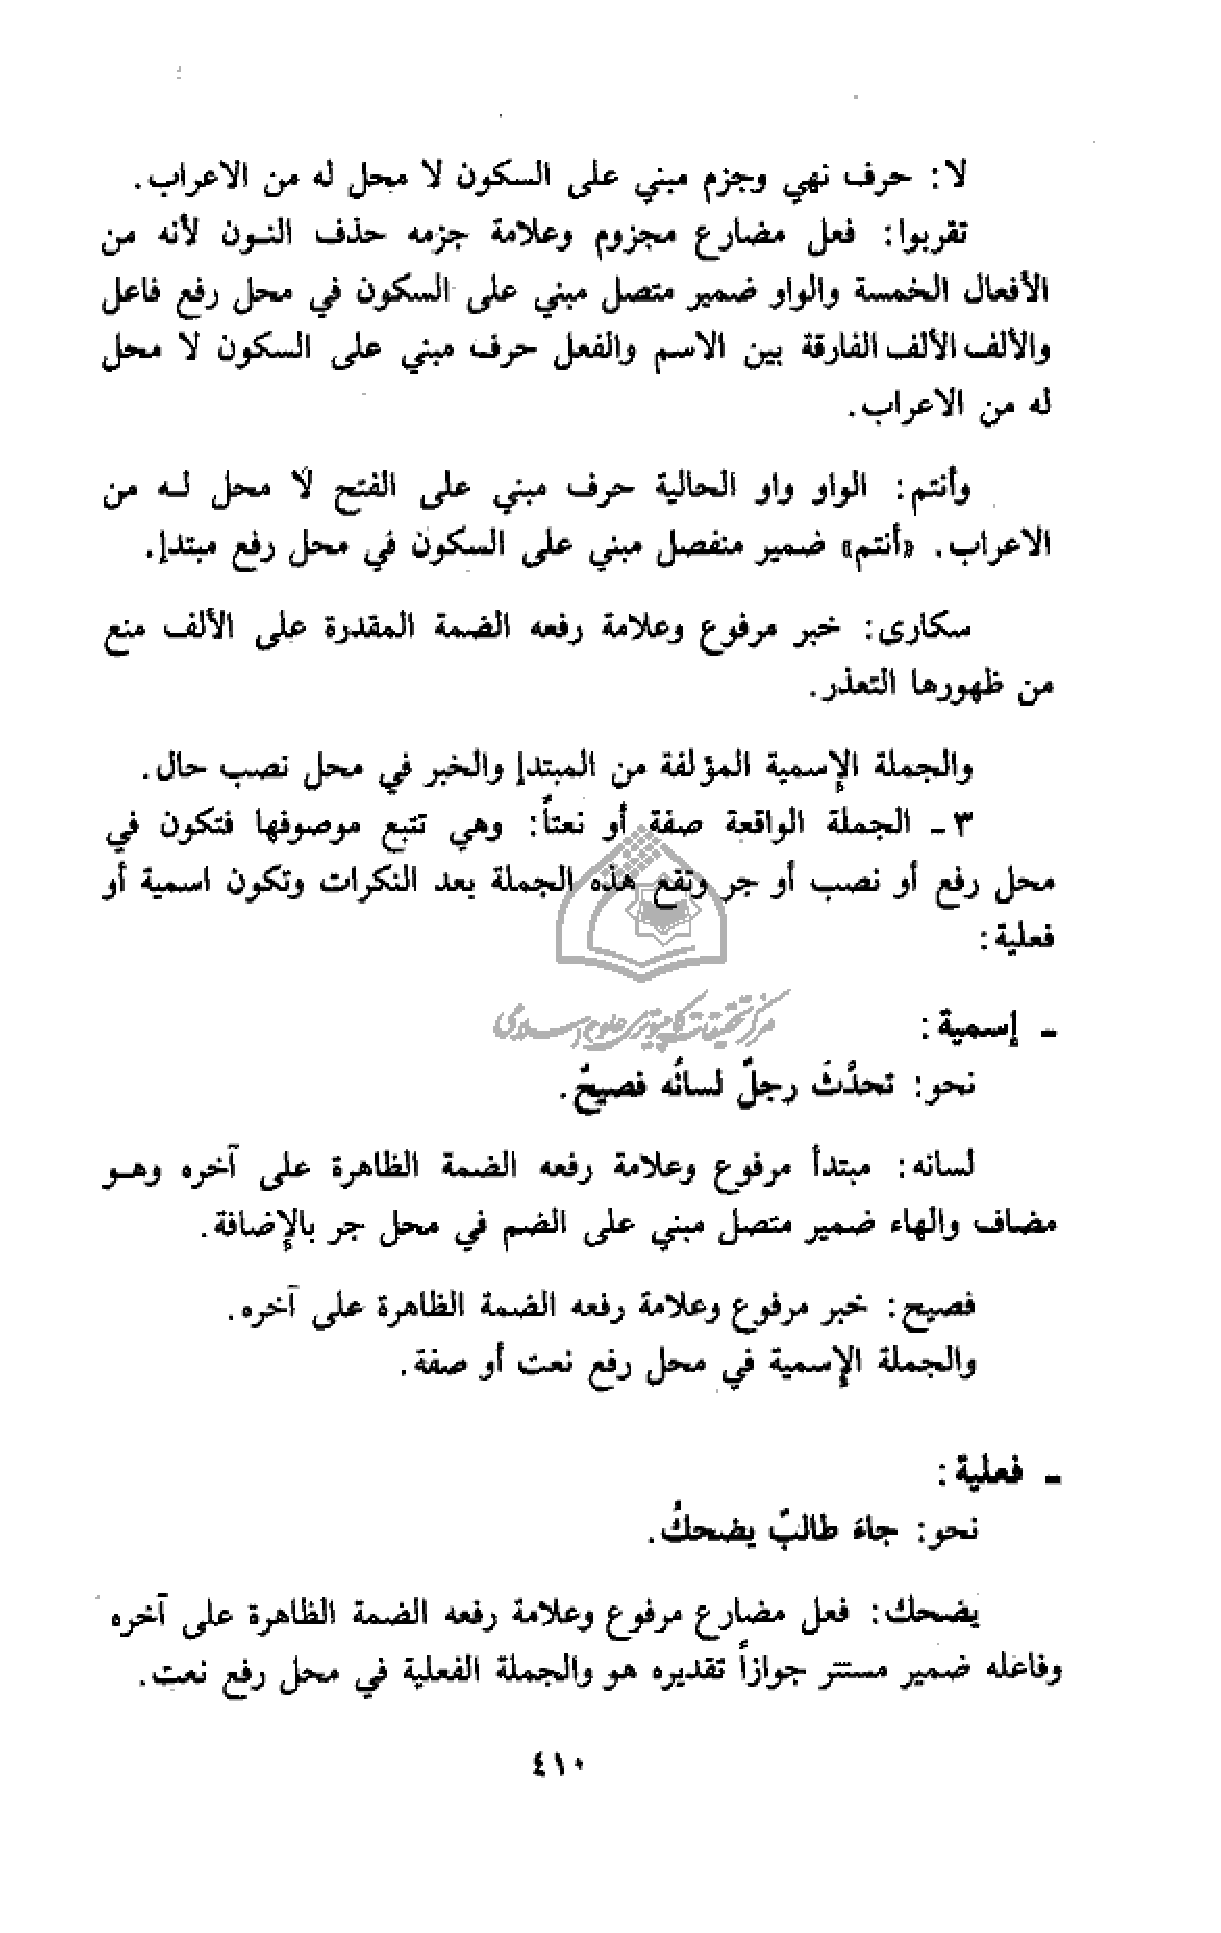 لا: حرف نهي وجزم مبني على السكون لا محل له من الاعراب.
تقربوا: فعل مضارع مجزوم وعلامة جزمه حذف النون لأنه من
الأفعال الخمسة والواو ضمير متصل مبني على السكون في محل رفع فاعل
والألف الألف الفارقة بين الاسم والفعل حرف مبني على السكون لا محل
له من الاعراب.
وأنتم: الواو واو الحالية حرف مبني على الفتح لا محل له من
الاعراب. «أنتم» ضمير منفصل مبني على السكون في محل رفع مبتدإ.
سكارى: خبر مرفوع وعلامة رفعه الضمة المقدرة على الألف منع
من ظهورها التعذر.
والجملة الإسمية المؤلفة من المبتدإ والخبر في محل نصب حال.
٣ - الجملة الواقعة صفة أو نعتاً: وهي تتبع موصوفها فتكون في
محل رفع أو نصب أو جر وتقع هذه الجملة بعد النكرات وتكون اسمية أو
فعلية:
مركز تحقيقات كامپيوترى علوم اسلامى
- إسمية:
نحو: تحدَّثَ رجلٌ لسانُه فصيحٌ.
لسانه: مبتدأ مرفوع وعلامة رفعه الضمة الظاهرة على آخره وهو
مضاف والهاء ضمير متصل مبني على الضم في محل جر بالإضافة.
فصيح: خبر مرفوع وعلامة رفعه الضمة الظاهرة على آخره.
والجملة الإسمية في محل رفع نعت أو صفة.
- فعلية:
نحو: جاءَ طالبٌ يضحكُ.
يضحك: فعل مضارع مرفوع وعلامة رفعه الضمة الظاهرة على آخره
وفاعله ضمير مستتر جوازاً تقديره هو والجملة الفعلية في محل رفع نعت.
٤١٠